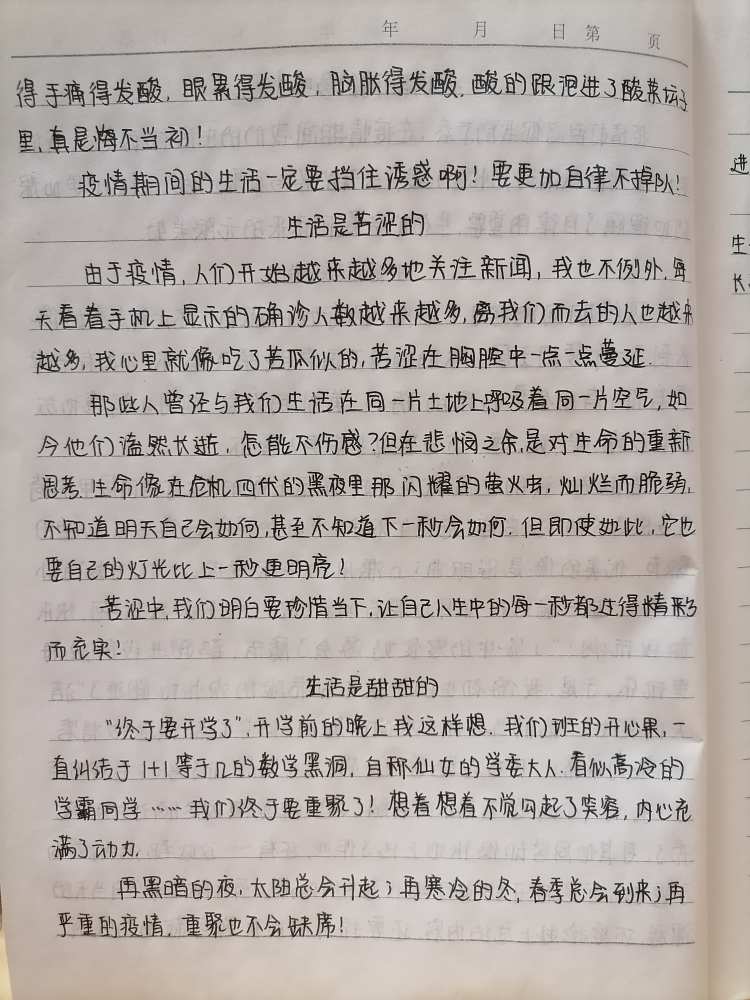 年 月 日 第 页
得手痛得发酸，眼累得发酸，脑胀得发酸，酸的眼泪进了酸菜坛子
里，真是悔不当初！
疫情期间的生活一定要挡住诱惑啊！要更加自律不掉队！
生活是苦涩的
由于疫情，人们开始越来越多地关注新闻，我也不例外，每
天看着手机上显示的确诊人数越来越多，离我们而去的人也越来
越多，我心里就像吃了苦瓜似的，苦涩在胸腔中一点一点蔓延.
那些人曾经与我们生活在同一片土地上呼吸着同一片空气，如
今他们溘然长逝，怎能不伤感？但在悲悯之余，是对生命的重新
思考.生命像在危机四伏的黑夜里那闪耀的萤火虫，灿烂而脆弱，
不知道明天自己会如何，甚至不知道下一秒会如何.但即使如此，它也
要自己的灯光比上一秒更明亮！
苦涩中，我们明白要珍惜当下，让自己人生中的每一秒都过得精彩
而充实！
生活是甜甜的
“终于要开学了”，开学前的晚上我这样想.我们班的开心果，一
直纠结于1+1等于几的数学黑洞，自称仙女的学委大人.看似高冷的
学霸同学……我们终于要重聚了！想着想着不觉勾起了笑容，内心充
满了动力.
再黑暗的夜，太阳总会升起；再寒冷的冬，春季总会到来；再
严重的疫情，重聚也不会缺席！
进
生
长